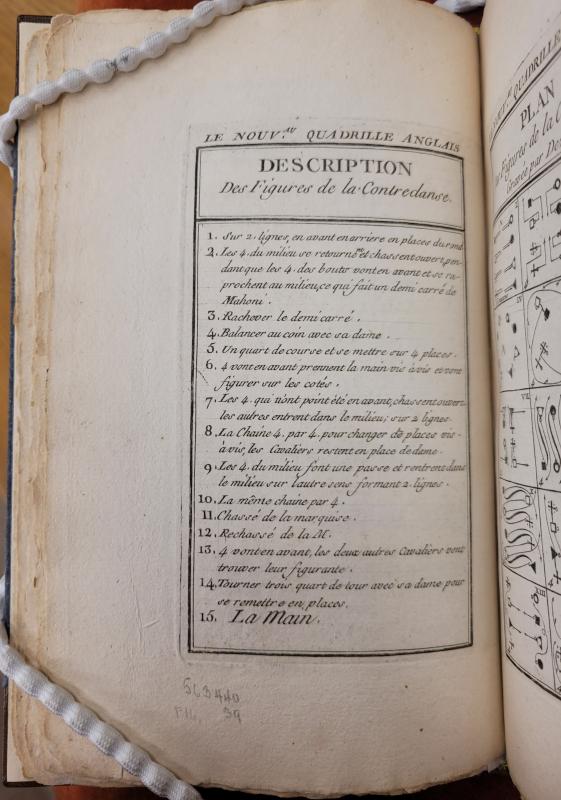 LE NOUV.au QUADRILLE ANGLAIS
DESCRIPTION
Des Figures de la Contredanse.
1. Sur 2. lignes, en avant en arriere en places du rond
2. Les 4. du milieu se retourne.nt et chassent ouvert, pen-
dant que les 4. des bouts vont en avant et se ra-
prochent au milieu, ce qui fait un demi carré de
Mahoni.
3. Rachover le demi carré.
4. Balancer au coin avec sa dame.
5. Un quart de course et se mettre sur 4 places.
6. 4 vont en avant prennent la main vis à vis et vont
figurer sur les cotés.
7. Les 4. qui n'ont point été en avant, chassent ouvert
les autres entrent dans le milieu; sur 2 lignes.
8. La Chaine 4. par 4. pour changer de places vis-
à vis, les Cavaliers restent en place de dame.
9. Les 4. du milieu font une passe et rentrent dans
le milieu sur l'autre sens formant 2. lignes.
10. La même chaine par 4.
11. Chassé de la marquise.
12. Rechassé de la M.
13. 4 vont en avant, les deux autres Cavaliers vont
trouver leur figurante.
14. Tourner trois quart de tour avec sa dame pour
se remettre en places.
15. La Main.
563440
39
QUADRILLE
PLAN
Figures de la C
VII